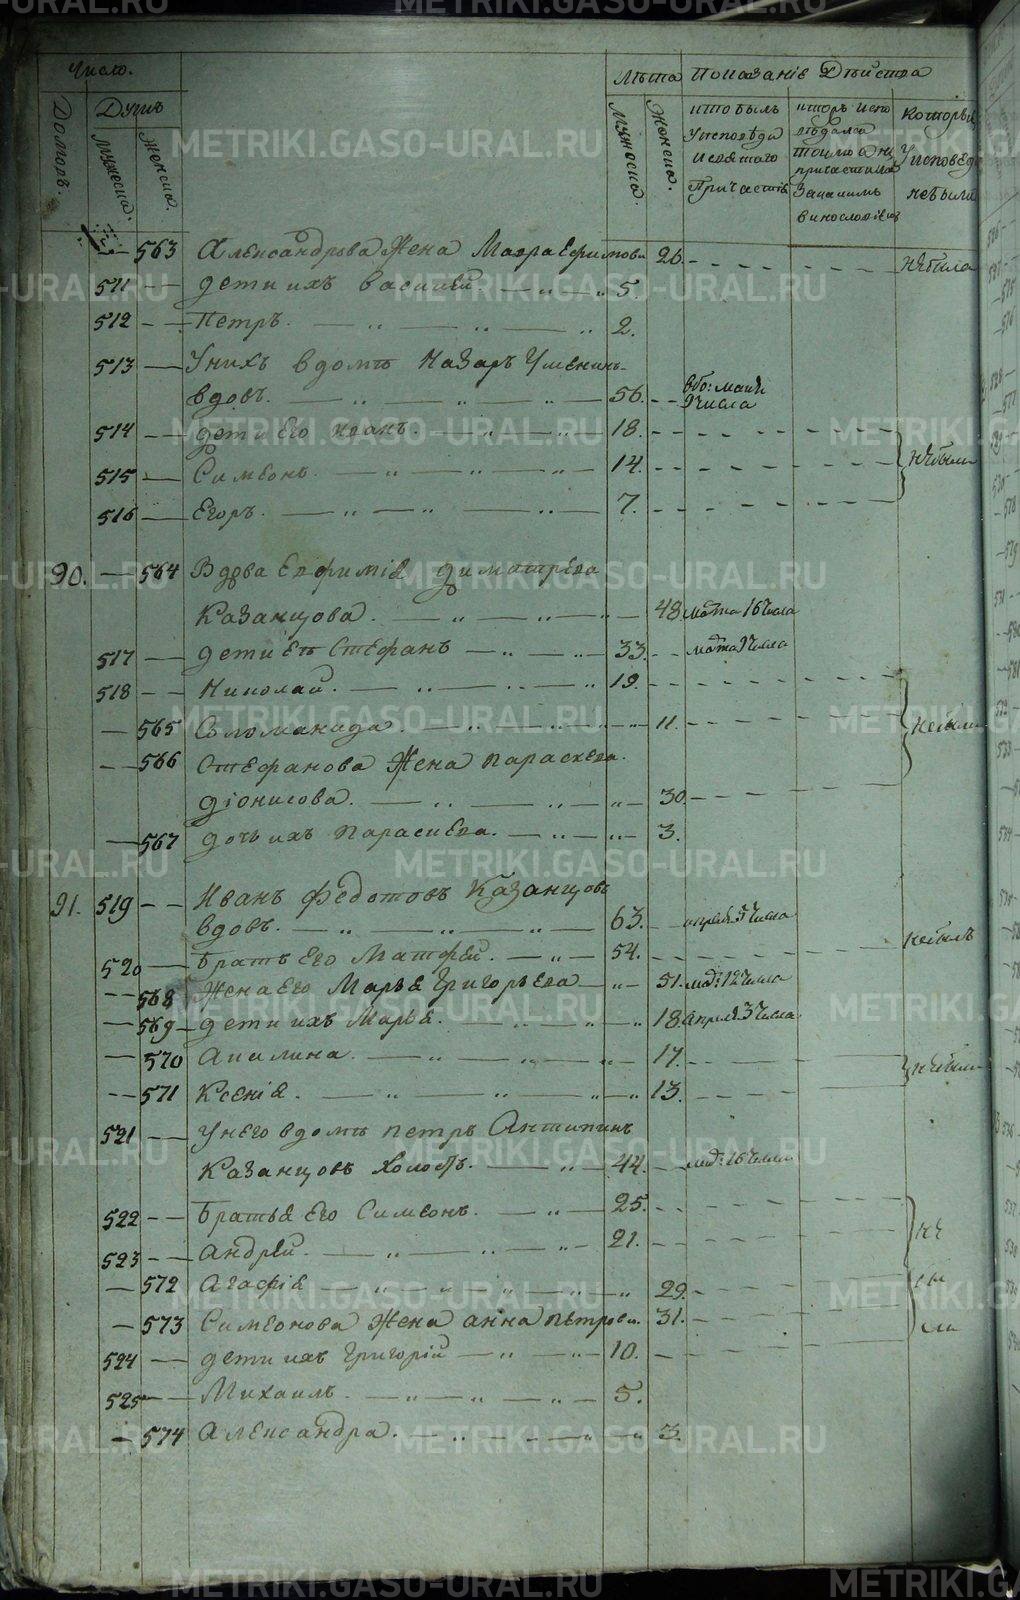 METRIKI.GASO-URAL.RU
Число.
Лѣта Показаніе Дѣйства
Домовъ.
Душъ
Мужеска.
Женска.
Мужеска.
Женска.
кто былъ
Уисповѣди
исвятаго
Причастія
Которыи
Уисповеди
небыли
563 Александрова Жена Мавра Ефимова 26. небыла
511 дети ихъ Василей. 5.
512 Петръ. 2.
513 Унихъ вдомѣ Назаръ
вдовъ. 56. 9 числа
514 дети Его Иванъ. 18. небыли
515 Симеонъ. 14.
516 Егоръ. 7.
90. 564 Вдова Евфиміѧ Диматрева
Казанцова. 48 марта 16 числа
517 дети Ея Стефанъ 33. марта 9 числа
518 Николай. 19.
565 Соломанида. 11. небыли
566 Стефанова Жена Параскева
Діонисова. 30.
567 дочь ихъ Параскева. 3.
91. 519 Иванъ Федотовъ Казанцовъ
вдовъ. 63. апреля 5 числа
520 Братъ Его Матфей. 54. небылъ
568 Жена Его Марья Григорьева 51. мар: 12 числа
569 дети ихъ Марья. 18 апреля 3 числа
570 Акилина. 17. небыли
571 Ксенія. 13.
521 Унего вдомѣ Петръ Антипинъ
Казанцовъ холостъ. 44. мар: 16 числа
522 Братья Его Симеонъ. 25.
523 Андрей. 21. не
572 Агафія 29. бы
573 Симеонова Жена Анна Петрова. 31. ли
524 дети ихъ Григорій 10.
525 Михаилъ. 5.
574 Александра. 3.